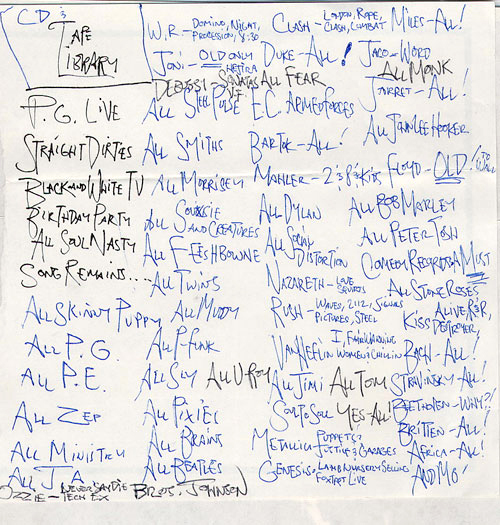 CD &
TAPE
LIBRARY
P.G. LIVE
STRAIGHT DIRTIES
BLACK AND WHITE TV
BIRTHDAY PARTY
ALL SOUL NASTY
SONG REMAINS...
ALL SKINNY PUPPY
ALL P.G
ALL P.E.
ALL ZEP
ALL MINISTRY
ALL J.A
OZZIE - NEVER SAY DIE
TECH EX
W.R - DOMINO, NIGHT,
PROCESSION, 8:30
JONI - OLD ONLY
HEJIRA
DEBUSSI - SONATAS
ALL STEEL PULSE
ALL SMITHS
ALL MORRISEY
ALL SOUXSIE
AND CREATURES
ALL FEESHBOWNE
ALL TWINS
ALL MUDDY
ALL P-FUNK
ALL SLY
ALL U ROY
ALL PIXIES
ALL BRAINS
ALL BEATLES
BROS. JOHNSON
CLASH - LONDON, ROPE,
CLASH, COMBAT
DUKE - ALL!
ALL FEAR
E.C. ARMED FORCES
BARTOK - ALL!
MAHLER - 2 & 8 & KIDS
ALL DYLAN
ALL SOCIAL
DISTORTION
NAZARETH - LOVE
RUSH - WAVES, 2112, SIGNALS
PICTURES, STEEL
VAN HEFLIN
WOMEN & CHILLIN
ALL JIMI
ALL TOM
SOUL TO SOUL
YES - ALL!
METALLICA - PUPPETS,
JUSTICE & GARAGES
GENESIS - LAMB, NURSERY, SELLING
FOXTROT LIVE
MILES - ALL!
JACO - WORD
ALL MONK
JARRET - ALL!
ALL JOHN LEE HOOKER
FLOYD - OLD!
ALL BOB MARLEY
ALL PETER TOSH
COMEDY RECORDS A MUST
ALL STONE ROSES
KISS ALIVE, R&R,
DESTROYER
BACH - ALL!
STRAVINSKY - ALL!
BEETHOVEN - WHY?!
BRITTEN - ALL!
AFRICA - ALL!
AND MO!